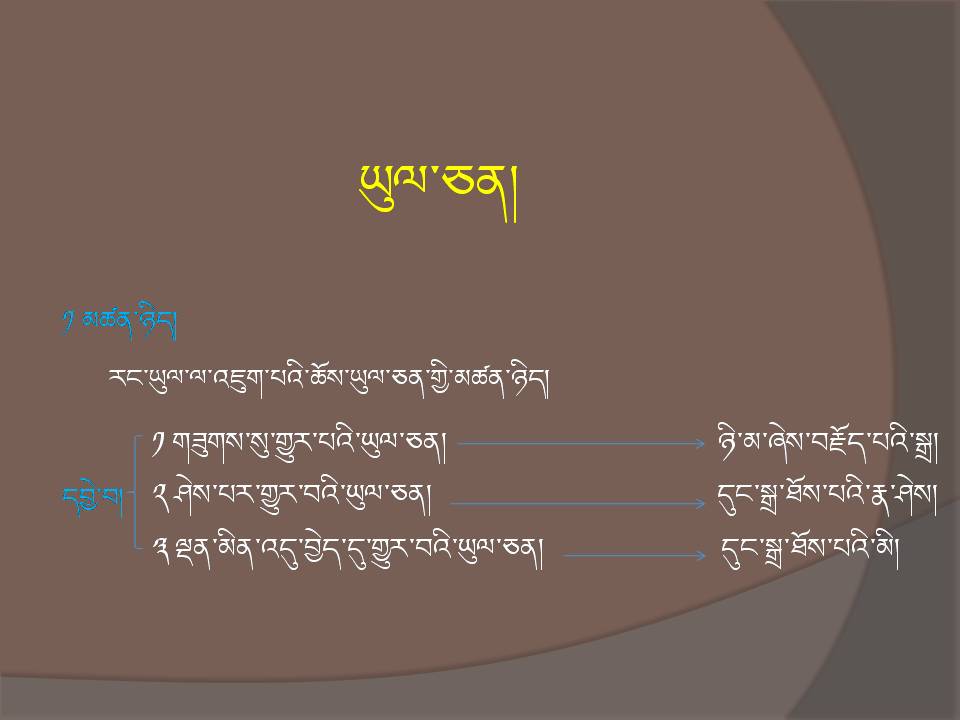 ཡུལ་ཅན།
༡ མཚན་ཉིད།
རང་ཡུལ་ལ་འཇུག་པའི་ཆོས་ཡུལ་ཅན་གྱི་མཚན་ཉིད།
དབྱེ་བ།
༡ གཟུགས་སུ་གྱུར་པའི་ཡུལ་ཅན། ཉི་མ་ཞེས་བརྗོད་པའི་སྒྲ།
༢ ཤེས་པར་གྱུར་བའི་ཡུལ་ཅན། དུང་སྒྲ་ཐོས་པའི་རྣ་ཤེས།
༣ ལྡན་མིན་འདུ་བྱེད་དུ་གྱུར་བའི་ཡུལ་ཅན། དུང་སྒྲ་ཐོས་པའི་མི།